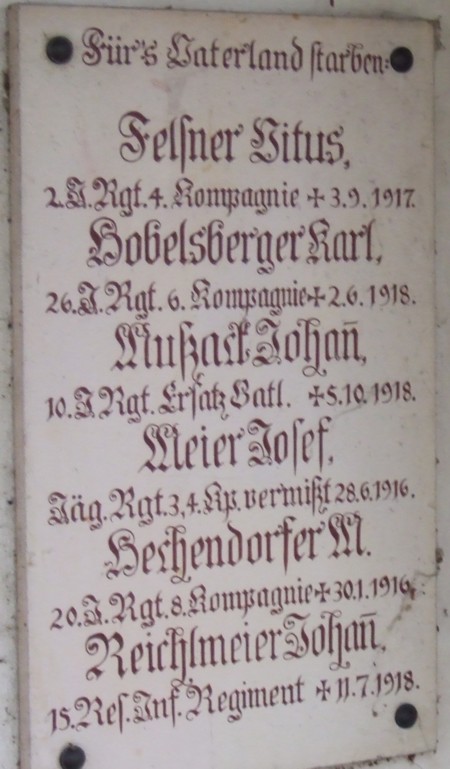 Für's Vaterland starben:
Felsner Vitus,
2. I. Rgt. 4. Kompagnie + 3.9. 1917.
Hobelsberger Karl,
26. I. Rgt. 6. Kompagnie + 2.6. 1918.
Mußack Johan̅,
10. I. Rgt. Ersatz Batl. + 5.10. 1918.
Meier Josef,
Jäg. Rgt. 3, 4. Kp. vermißt 28.6. 1916.
Hechendorfer M.
20. I. Rgt. 8. Kompagnie + 30.1. 1916.
Reichlmeier Johan̅,
15. Res. Inf. Regiment + 11.7. 1918.